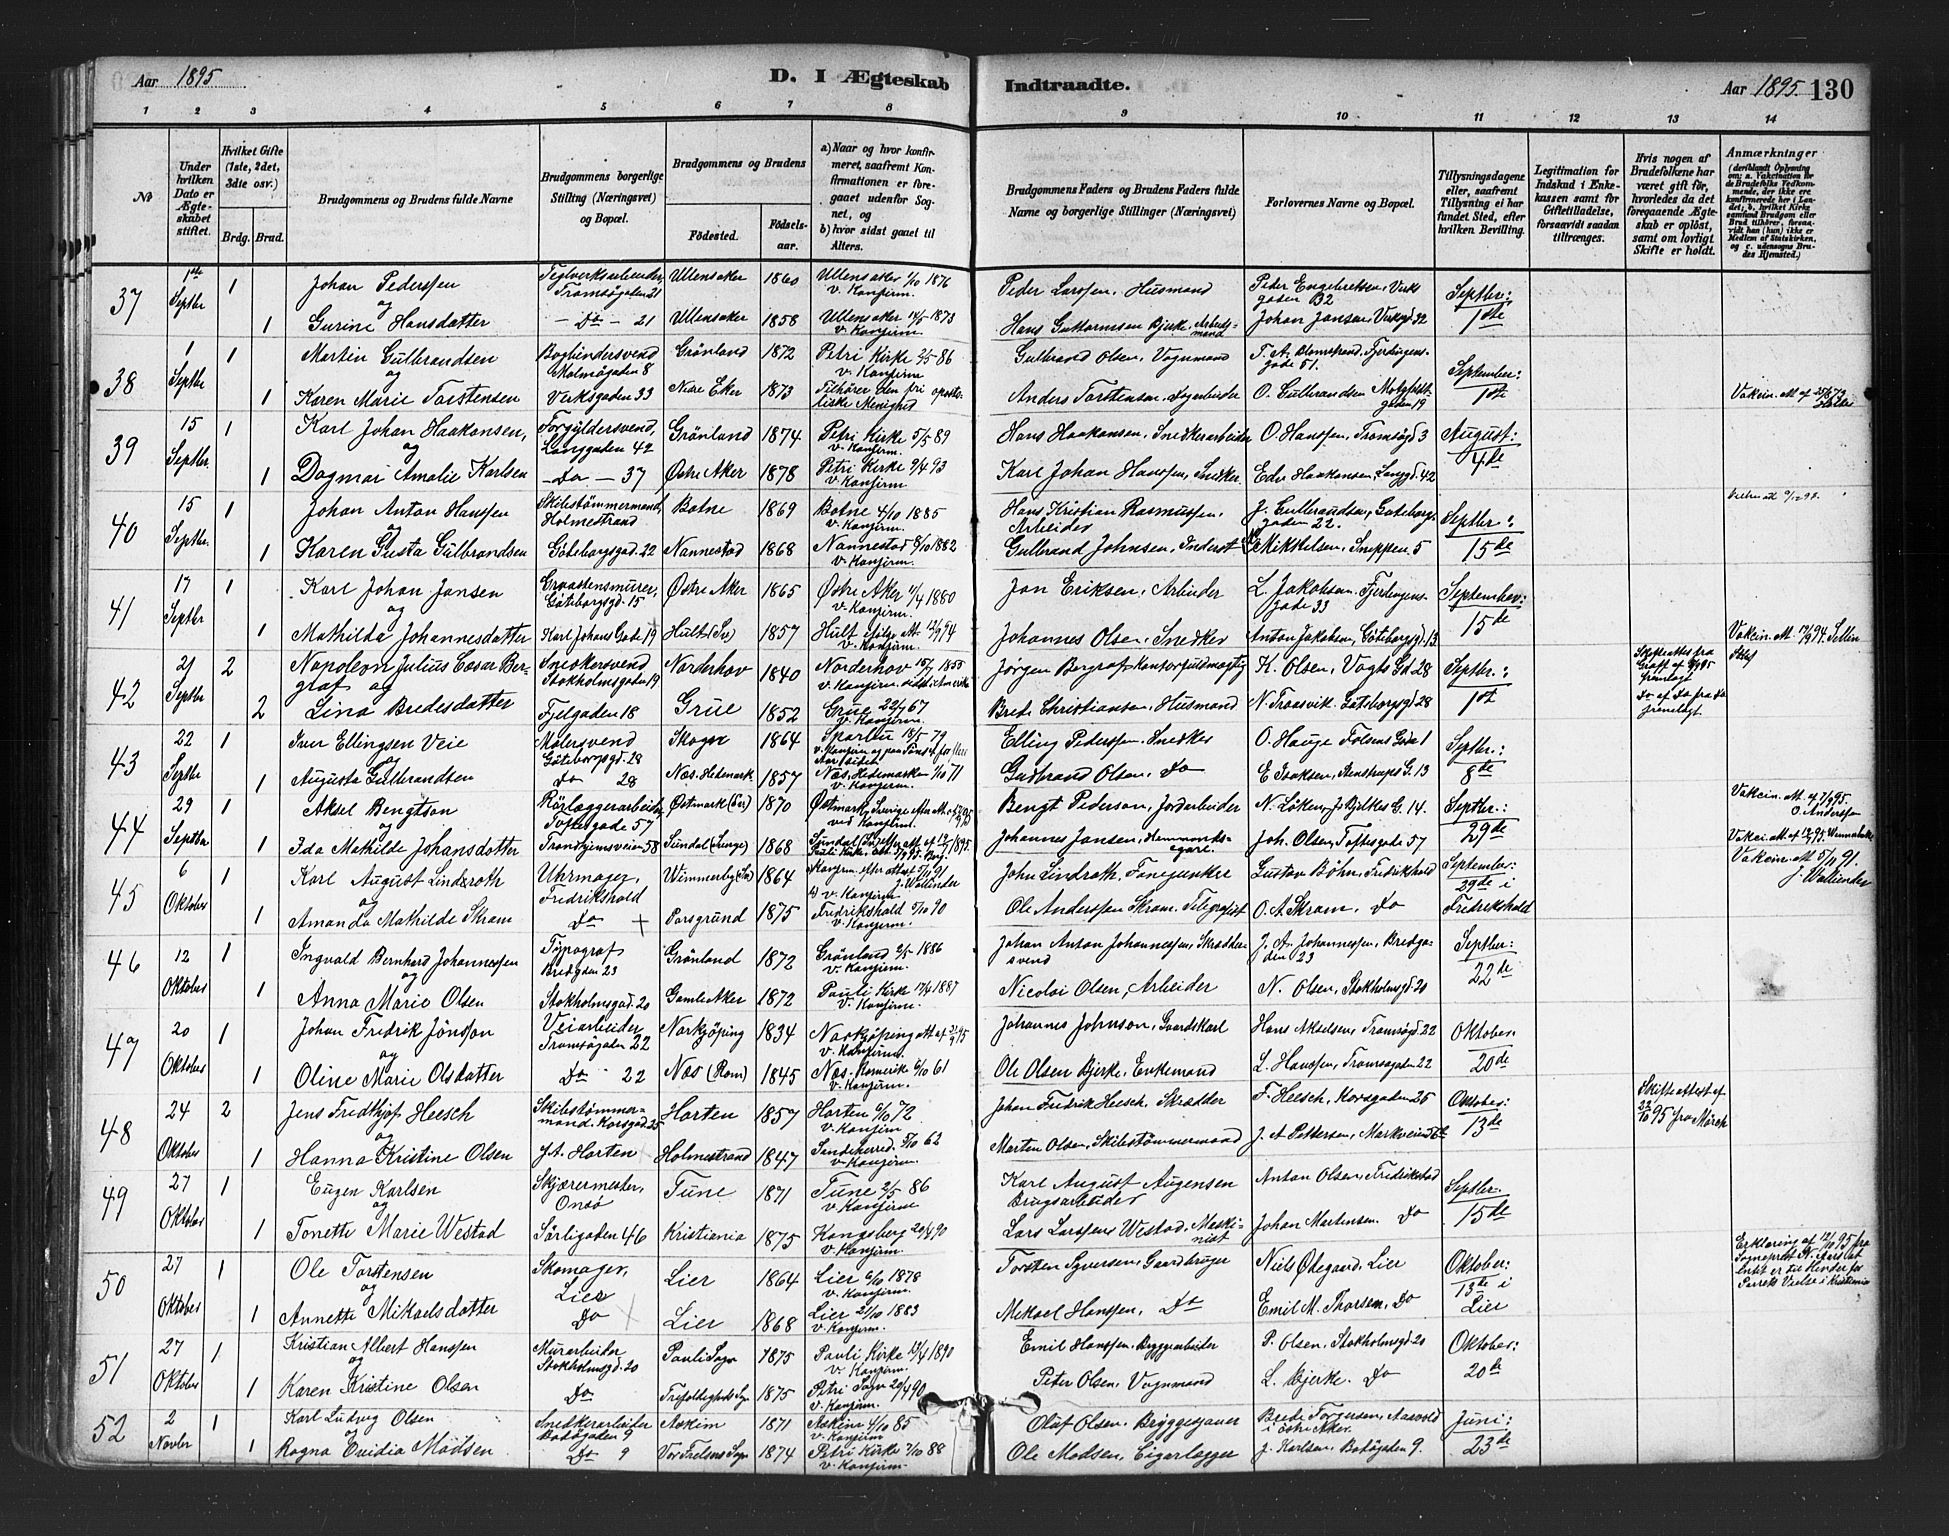 Aar 1895
D. I Ægteskab
Indtraadte.
Aar 1895. 130
1 2 3 4 5 6 7 8 9 10 11 12 13 14
No
Under hvilken Dato er Ægteskabet stiftet.
Hvilket Gifte (1ste, 2det, 3die osv.)
Brdg. Brud.
Brudgommens og Brudens fulde Navne
Brudgommens borgerlige Stilling (Næringsvei) og Bopæl.
Brudgommens og Brudens
Fødested.
Fødselsaar.
a) Naar og hvor konfirmeret, saafremt Konfirmationen er foregaaet udenfor Sognet, og
b) hvor sidst gaaet til Alters.
Brudgommens Faders og Brudens Faders fulde Navne og borgerlige Stillinger (Næringsvei)
Forlovernes Navne og Bopæl.
Tillysningsdagene eller, saafremt Tillysning ei har fundet Sted, efter hvilken Bevilling.
Legitimation for Indskud i Enkekassen samt for Giftetilladelse, forsaavidt saadan tiltrænges.
Hvis nogen af Brudefolkene har været gift før, hvorledes da det foregaaende Ægteskab er opløst, samt om lovligt Skifte er holdt.
Anmærkninger
37 1ste Septbr 1 Johan Pederssen Teglverksarbeider, Tromsøgaden 21 Ullensaker 1860 Ullensaker 1/10 1876 v. Konfirm. Peder Larssen, Husmand Peder Engebretsen, Verksgaden B2 Septbr: 1ste
og
1 Gurine Hansdatter - Do - 21 Ullensaker 1858 Ullensaker 1873 v. Konfirm. Hans Guttormsen Bjerke, Arbeidsmand Johan Jansen, Verksgd 32
38 1 Septbr 1 Martin Gulbrandsen Bogbindersvend Malmøgaden 8 Grønland 1872 Petri Kirke 2/5 86 v. Konfirm Gulbrand Olsen, Vognmand Blomstrand, Fjerdingensgade 51. September: 1ste
og
1 Karen Marie Torstensen Verksgaden 33 Nedre Eker 1873 Tilhører den fri apostoliske Menighed Anders Torstensen, Jordarbeider O. Gulbrandsen Motzfeldtgaden 19
39 15 Septbr. 1 Karl Johan Haakonsen, Forgyldersvend, Langgaden 42 Grønland 1874 Petri Kirke 5/5 89 v. Konfirm. Hans Haakonsen, Snedkerarbeider O. Hanssen, Tromsøgd 3 August: 4de
og
1 Dagmar Amalie Karlsen - Do - 37 Østre Aker 1878 Petri Kirke 9/4 93 v. Konfirm Karl Johan Hanssen, Snedker Edv. Haakonsen, Langgd. 42
40 15 Septbr. 1 Johan Anton Hanssen Skibstømmermand, Holmestrand Botne 1869 Botne 4/10 1885 v. Konfirm. Hans Kristian Rasmussen, Arbeider J. Gulbrandsen, Gøteborggaden 22. Septbr: 15de
og
1 Karen Gusta Gulbrandsen Gøteborgsgd. 22 Nannestad 1868 Nannestad 8/10 1882 v. Konfirm. Gulbrand Johnsen, Inderst Mikkelsen, Snippen 5
41 17 Septbr 1 Karl Johan Jansen Graastensmurer, Gøteborgsgd. 15 Østre Aker 1865 Østre Aker 11/4 1880 v. Konfirm. Jan Eriksen, Arbeider L. Jakobsen, Fjerdingensgade 33 September: 15de
og
1 Mathilda Johannesdatter Karl Johans Gade 19 Hult (Sv) 1857 Hult ifølge att. v. Konfirm. Johannes Olsen, Snedker Anton Jakobsen, Gøteborgsgd. 13
42 21 Septbr 2 Napoleon Julius Cæsar Bergraf Snedkersvend Stokholmsgaden 19 Norderhov 1840 Norderhov 1855 v. Konfirm. sidst i Amerika Jørgen Bergraf, Kontorfuldmægtig K. Olsen, Vogts Gd. 28 Septbr: 1ste
og
2 Lina Bredesdatter Fjelgaden 18 Grue 1852 Grue 22/4 67 v. Konfirm. Brede Christiansen, Husmand N. Traasvik, Gøteborgsgd 28
43 22 Septbr 1 Iver Ellingsen Veie Malersvend Gøteborgsgd. 28 Skogn 1864 Sparbu 79 Elling Pederssen, Snedker O. Hauge Falsens Gade 1 Septbr.: 8de
og
1 Augusta Gulbrandsen Do 28 Næs. Hedemark 1857 Næs. Hedemarken 1/10 71 v. Konfirm. Gudbrand Olsen, Do E. Isaksen, Stenstrups G. 13
44 29 Septbr 1 Aksel Bengtson Rørlæggerarbeider Toftesgade 57 Østmark (Sv) 1870 Østmark, Sverige ved Konfirm. Bengt Pederson, Jordarbeider N. Løken, J. Bjelkes G. 14. Septbr.: 29de
og
1 Ida Mathilde Johansdotter Trondhjemsveien 58 Sundal (Sverige) 1868 Johannes Jansen, Joh. Olsen, Toftesgade 57
45 6 Oktober 1 Karl August Linderoth Uhrmager, Fredrikshald Wimmerby (Sv) 1864 J. Wallinder b) v. Konfirm John Lindroth, Fanejunker Gustav Bøhn, Fredrikhald September: 29de i Fredrikshald
og
1 Amanda Mathilde Skram Do Porsgrund 1875 Fredrikshald 5/10 90 v. Konfirm. Ole Anderssen Skram, Telegrafist O. A. Skram, Do
46 12 Oktober 1 Ingvald Bernhard Johannessen Typograf Bredgden 23 Grønland 1872 Grønland 2/5 1886 v. Konfirm. Johan Anton Johannessen, Skræddersvend J. A. Johannessen, Bredgaden 23 Septbr: 22de
og
1 Anna Marie Olsen Stokholmsgad. 20 Gamle Aker 1872 Pauli Kirke 17/4 1887 v. Konfirm. Nicolai Olsen, Arbeider N. Olsen, Stokholmsgd 20
47 20 Oktober 1 Johan Fredrik Jönsson Veiarbeider Tromsøgaden 22 Norkjöping 1834 Norkjöping v. Konfirm. Johannes Johnson, Gaardskarl Hans Akselsen, Tromsøgd. 22 Oktober: 20de
og
1 Oline Marie Olsdatter Do 22 Næs (Rom) 1845 Næs. Romerik 6/10 61 v. Konfirm. Ole Olsen Bjerke, Enkemand L. Hanssen, Tromsøgaden 22
48 24 Oktober 2 Jens Fredthjof Heesch Skibstømmermand. Korsgad. 25 Horten 1857 Horten 6/10 72 v. Konfirm Johan Fredrik Heesch, Skrædder F. Heesch, Korsgaden 25 Oktober: 13de
og
1 Hanna Kristine Olsen p.t. Horten Holmestrand 1847 Sandeherred 5/10 62 v. Konfirm. Morten Olsen, Skibstømmermand J. A. Pettersen, Markveien 56
49 27 Oktober 1 Eugen Karlsen Skjærermester, Onsø Tune 1871 Tune 2/5 86 v. Konfirm Karl August Augensen Brugsarbeider Anton Olsen, Fredrikstad Septbr. 15de
og
1 Tonette Marie Westad Sørligaden 46 Kristiania 1875 Kongsberg 20/4 90 v. Konfirm. Lars Larssen Westad, Maskinist Johan Martensen. Do
50 27 Oktober 1 Ole Torstensen Skomager, Lier Lier 1864 Lier 6/10 1878 v. Konfirm. Torsten Syversen, Gaardbruger Niels Ødegaard, Lier Oktober: 13de i Lier
og
1 Annette Mikaelsdatter Do Lier 1868 Lier 21/10 1883 v. Konfirm. Mikael Hanssen, Do Emil M. Thorsen, Do
51 27 Oktober 1 Kristian Albert Hanssen Murarbeider Stokholmsgd. 20 Pauli Sogn 1875 Pauli Kirke 13/4 1890 v. Konfirm. Emil Hanssen, Bryggearbeider P. Olsen, Stokholmsgd. 20 Oktober: 20de
og
1 Karen Kristine Olsen Do Trefoldigheds Sogn 1875 Petri Sogn 20/4 90 v. Konfirm. Peter Olsen, Vognmand L. Bjerke. Do
52 2 Novbr 1 Karl Ludvig Olsen Snedkerarbeider Bodøgaden 9 Askim 1871 Askim 4/10 85 v. Konfirm Olaf Olsen, Bryggesjauer Brede Torgersen, Aasvold i østre Aker. Juni: 23de
og
1 Ragna Ovidia Madsen Do 9 Vor Frelsers Sogn 1874 Petri Kirke 7/10 88 v. Konfirm. Ole Madsen, Cigarlægger J. Karlsen, Bodøgaden 9.